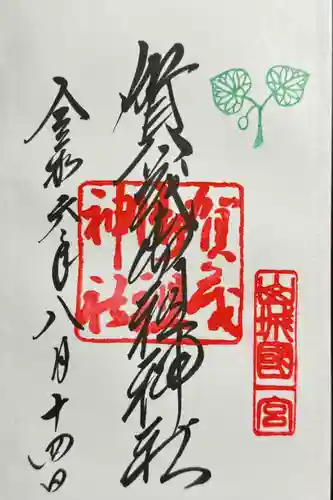 山城國一宮
賀茂御祖神社
賀茂御祖神社
令和六年八月十四日